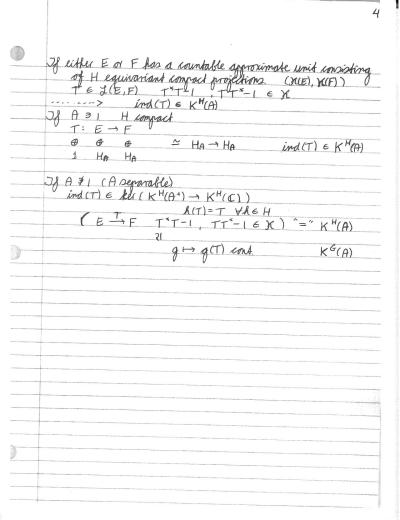 4
If either E or F has a countable approximate unit consisting
of H equivariant compact projections (K(E), K(F))
T ∈ L(E,F)   T*T-1, TT*-1 ∈ K
--------> ind(T) ∈ K^H(A)
If A ∋ 1   H compact
T: E → F
⊕ ⊕ ⊕   ≅ H_A → H_A   ind(T) ∈ K^H(A)
1 H_A H_A
If A ∌ 1 (A separable)
ind(T) ∈ ker(K^H(A⁺) → K^H(ℂ))
h(T)=T ∀h∈H
(E T→ F   T*T-1, TT*-1 ∈ K) "=" K^H(A)
g ↦ g(T) cont.   K^G(A)